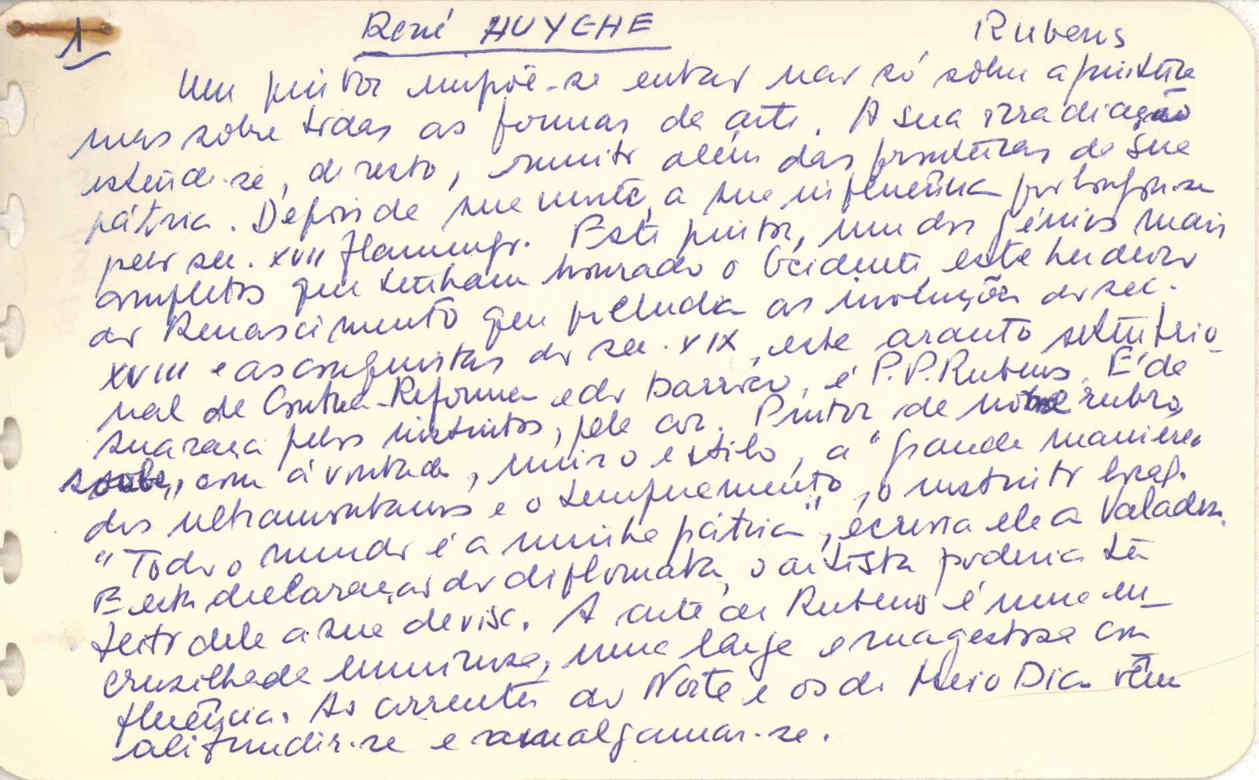 1 René HUYGHE Rubens
Um pintor impõe-se entar nar só sôbre a pintura
mas sôbre todas as formas de arte. A sua irradiação
estende-se, de resto, muito além das fronteiras de sua
pátria. Depois de sua morte, a sua influência prolonga-se
pelo sec. XVII flamengo. Este pintor, um dos génios mais
completos que tenham honrado o Ocidente, este herdeiro
do Renascimento que preludia as evoluções do sec.
XVIII e as conquistas do sec. XIX, este arauto setentrio-
nal da Contra-Reforma e do barroco, é P.P. Rubens. É de
sua raça pelos instintos, pela cor. Pintor de rubro,
com à vontade, uniu o estilo, a "grande maniera"
dos ultramontanos e o temperamento, o instinto local.
"Todo o mundo é a minha pátria", escrevia ele a Valadés.
E esta declaração do diplomata, o artista poderia ter
feito dela a sua devisa. A arte de Rubens é uma en-
cruzilhada luminosa, uma larga e magestosa con
fluência. As correntes do Norte e os do Meio Dia vêm
ali fundir-se e amalgamar-se.